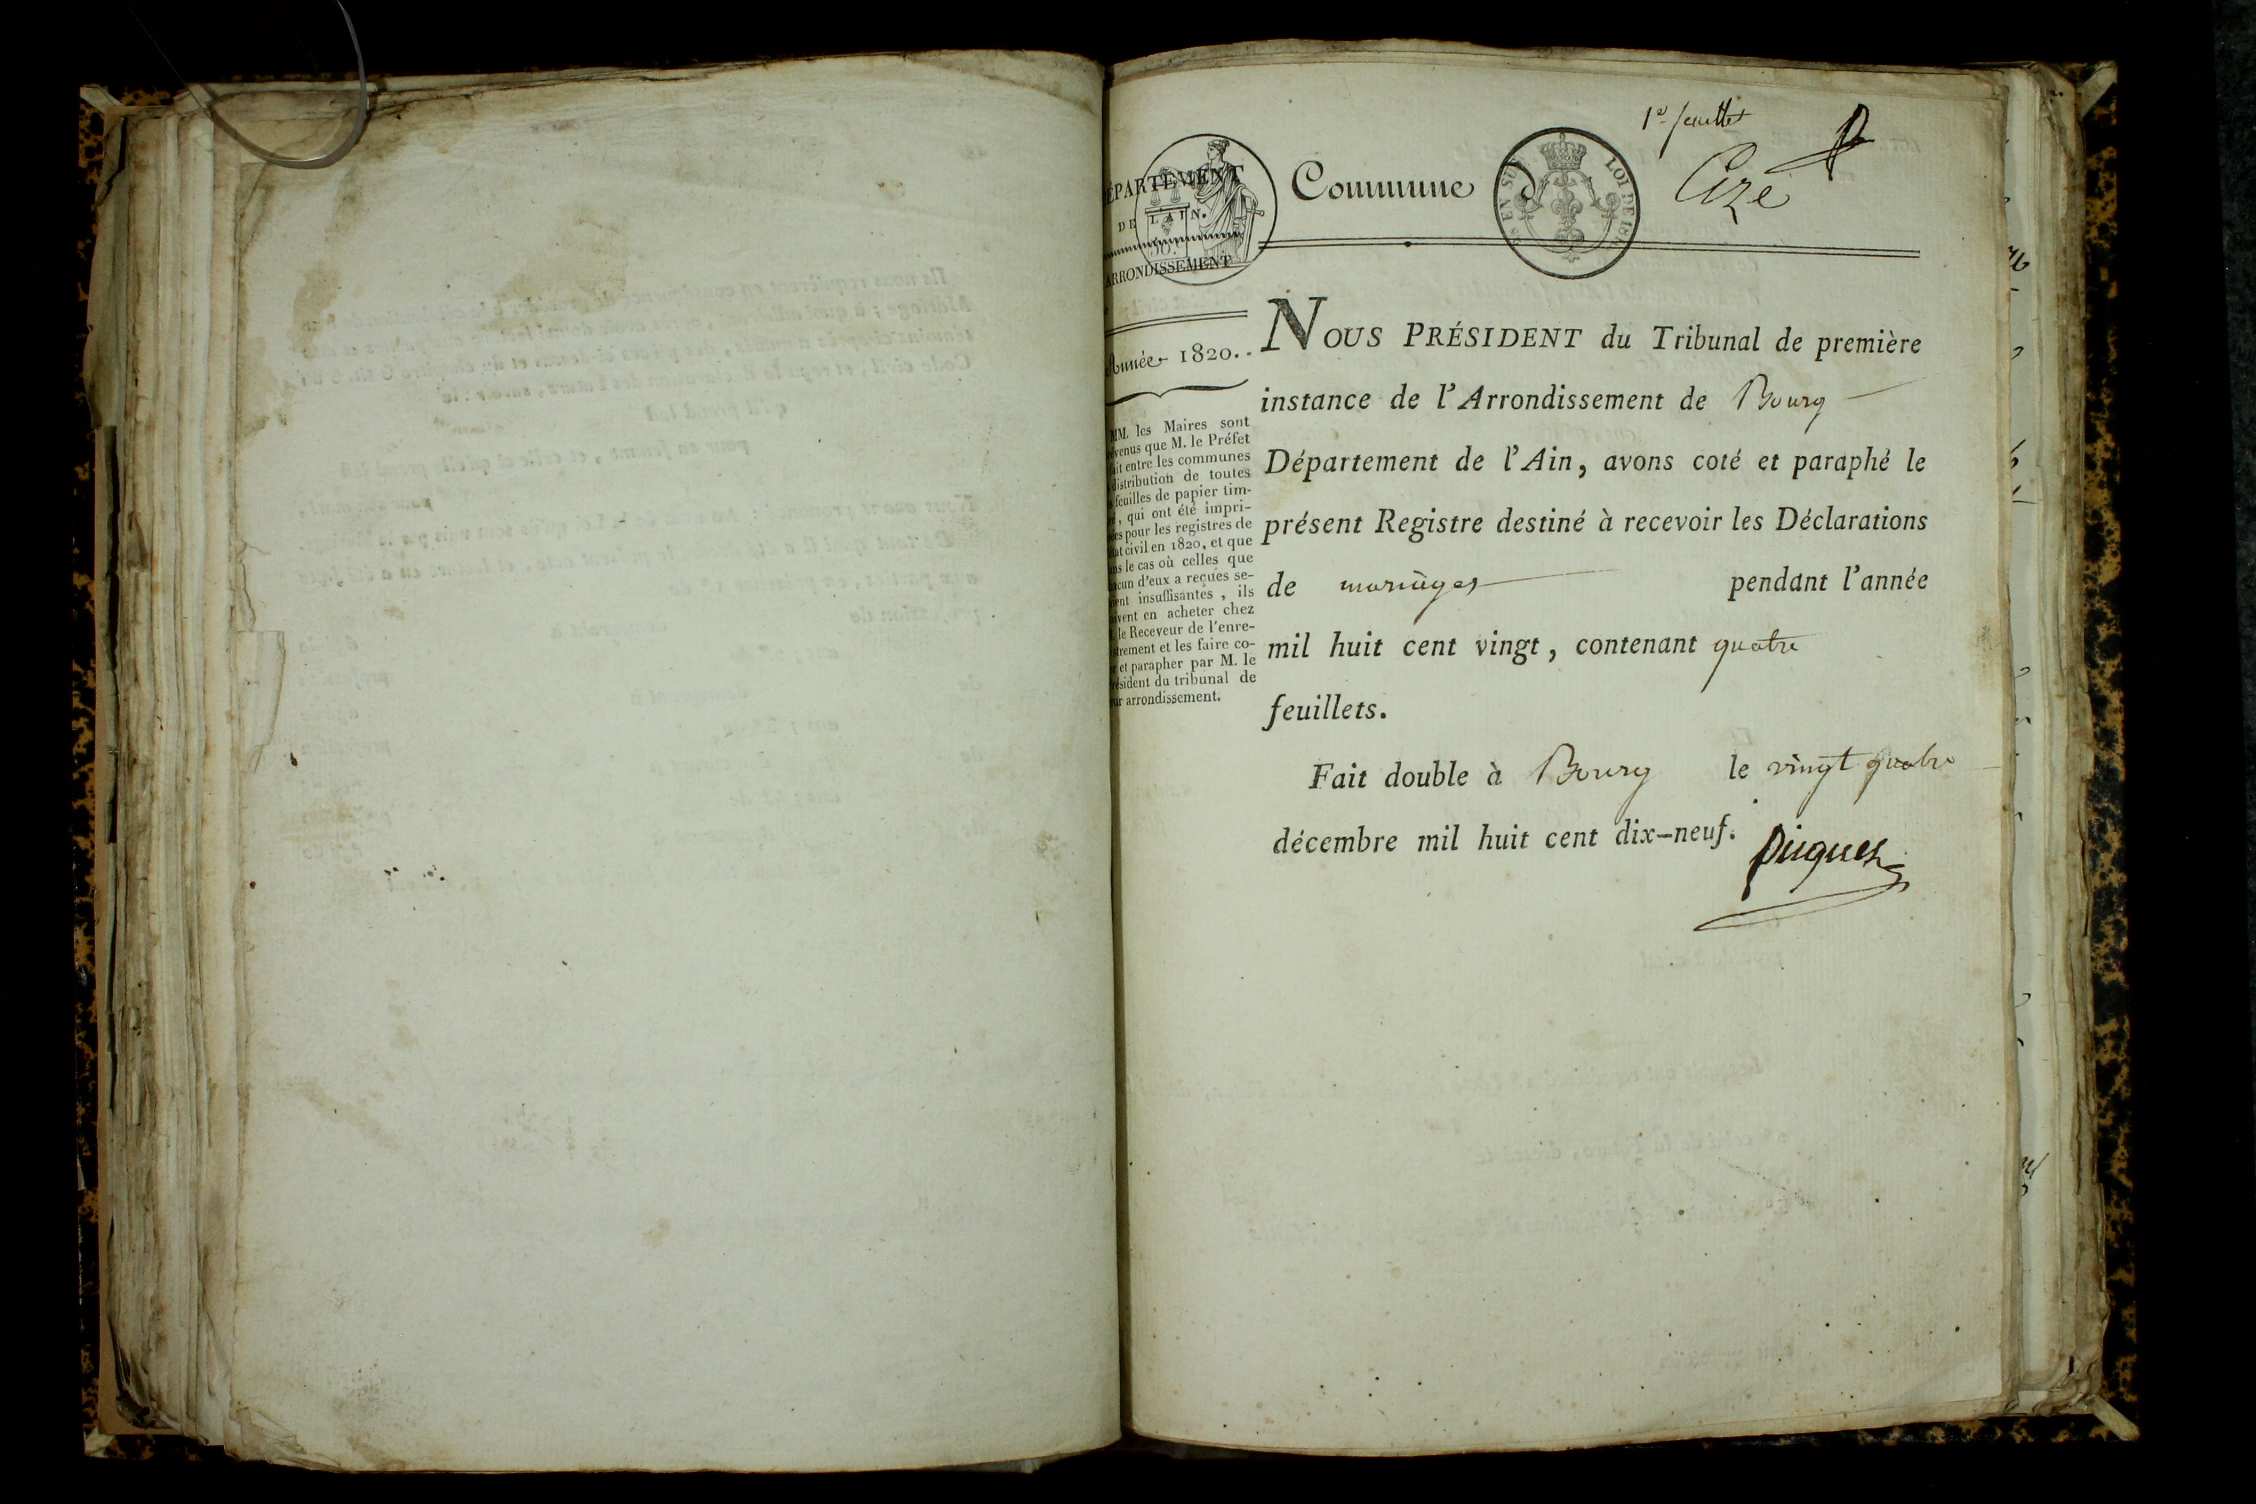 1er feuillet
DÉPARTEMENT
DE L'AIN.
ARRONDISSEMENT
Commune de Cize
LOI DE 18
Année 1820.
MM. les Maires sont
venus que M. le Préfet
fait entre les communes
distribution de toutes
feuilles de papier tim-
, qui ont été impri-
pour les registres de
civil en 1820, et que
le cas où celles que
d'eux a reçues se-
insuffisantes, ils
en acheter chez
le Receveur de l'enre-
et les faire co-
et parapher par M. le
Président du tribunal de
arrondissement.
NOUS PRÉSIDENT du Tribunal de première
instance de l'Arrondissement de Bourg
Département de l'Ain, avons coté et paraphé le
présent Registre destiné à recevoir les Déclarations
de mariages pendant l'année
mil huit cent vingt, contenant quatre
feuillets.
Fait double à Bourg le vingt quatre
décembre mil huit cent dix-neuf.